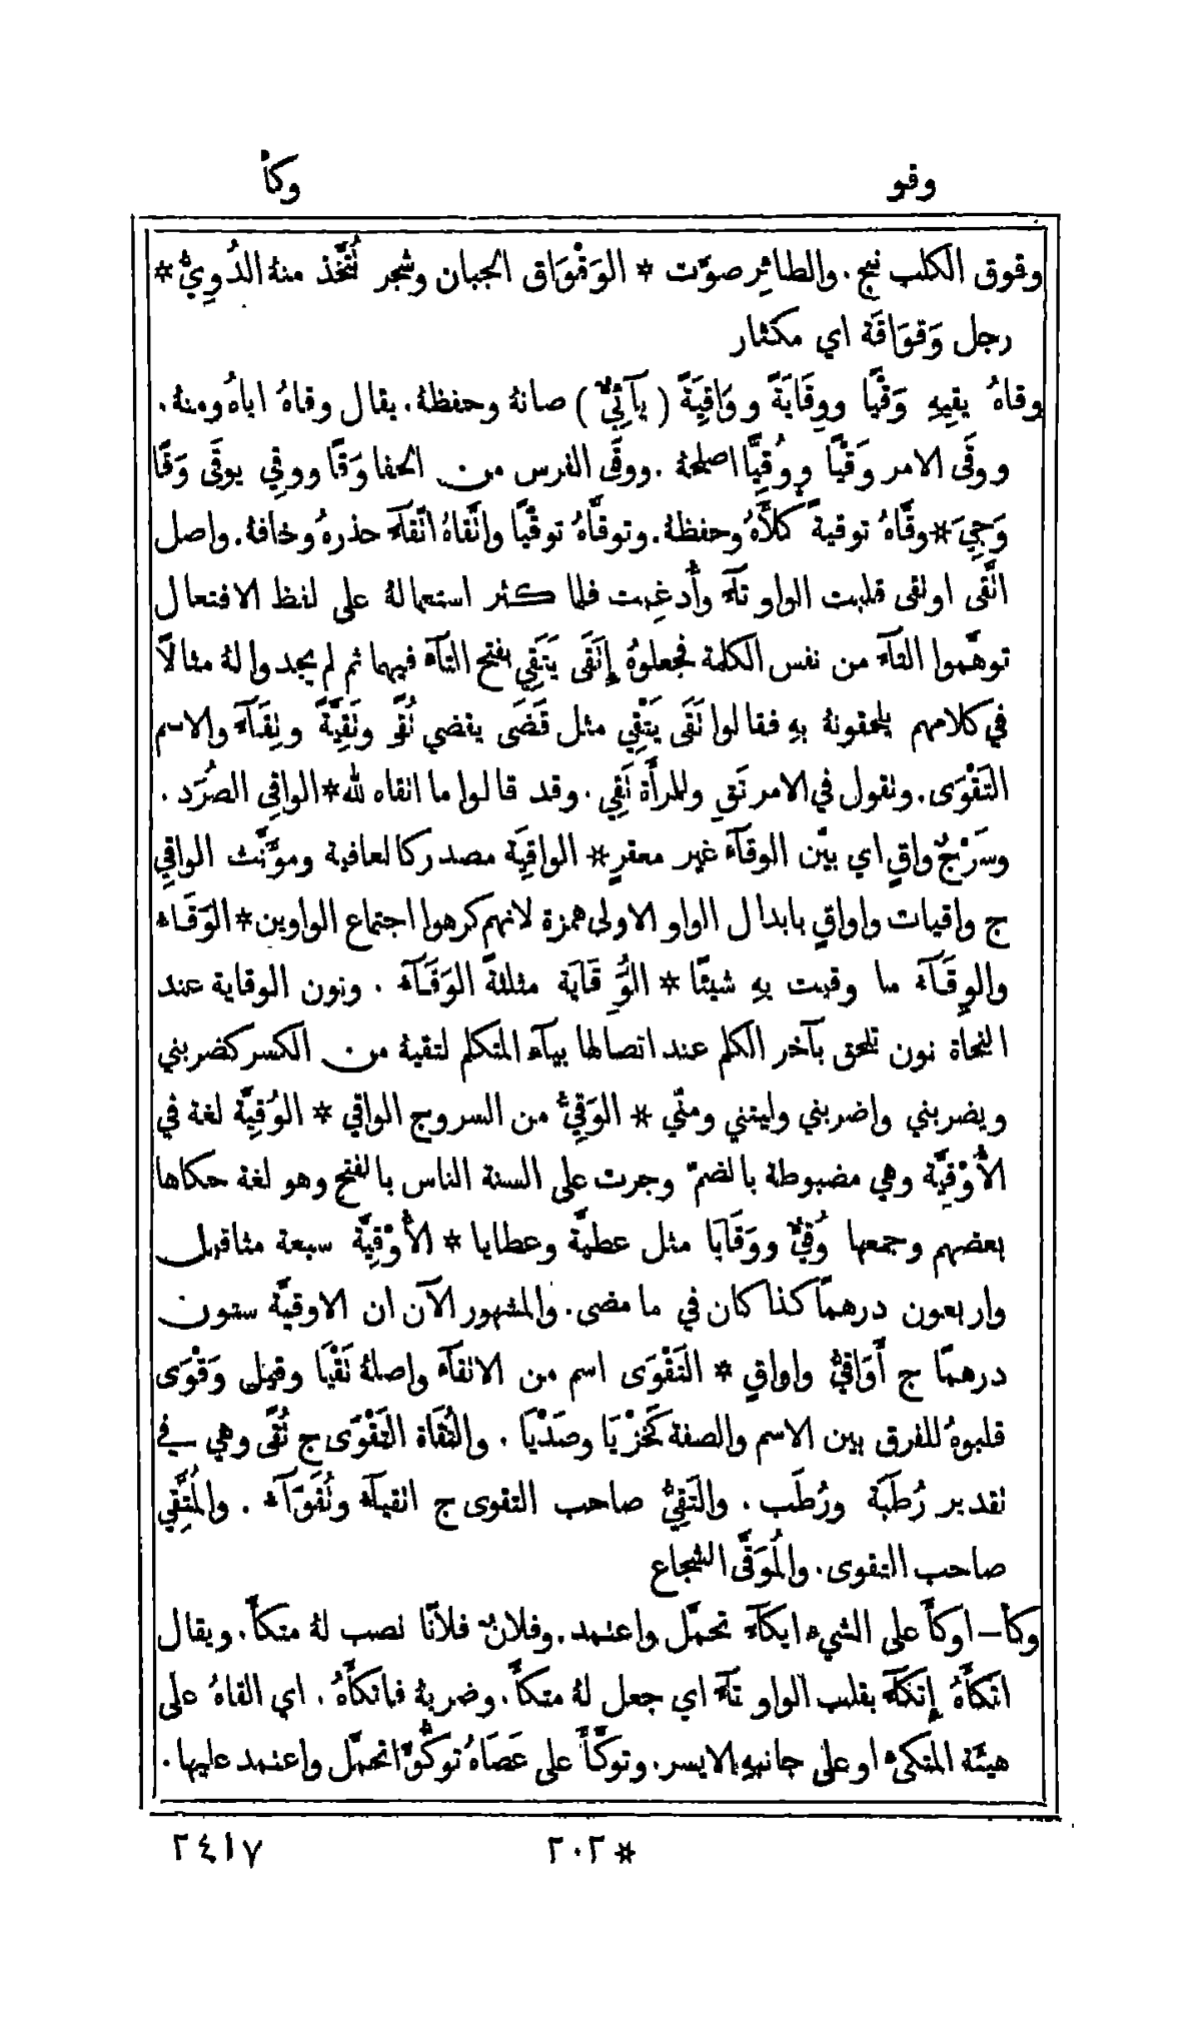 وقو
وكأ
وقوق الكلب نبح. والطائِر صوَّت * الوَقْوَاق الجبان وشجر تُتَّخَذ منهُ الدُوِيُّ *
رجل وَقوَاقَة اي مكثار
وقاهُ يقِيهِ وَقْيًا ووِقَايَةً ووَاقِيَةً (يآئِيٌّ) صانهُ وحفظهُ. يقال وقاهُ اياهُ ومنهُ.
ووقَى الامر وَقْيًا ووُقِيًّا اصلحهُ. ووقَى الفرس من الحفا وَقًا ووقِي يوقَى وَقًا
وَجِيَ * وقَّاهُ توقيةً كَلَّأَهُ وحفظهُ. وتوقَّاهُ توقّيًا واتَّقاهُ اتّقآءً حذرهُ وخافهُ. واصل
اتَّقى اوتقى قلبت الواو تآءً وأُدغِمت فلما كثر استعمالهُ على لفظ الافتعال
توهَّموا التآءَ من نفس الكلمة فجعلوهُ إِتَقَى يَتَقِي بفتح التآء فيهما ثم لم يجدوا لهُ مثالًا
في كلامهم يلحقونهُ بهِ فقالوا تَقَى يَتْقِي مثل قَضَى يقضي تُقًى وتَقِيَّةً وتِقَآءً والاسم
التَقْوَى. ونقول في الامر تَقِ وللمرأَة تَقِي. وقد قالوا ما اتقاه لله * الواقِي الصُرَد.
وسَرْجٌ واقٍ اي بيّن الوقآءِ غير معقرٍ * الواقِيَة مصدر كالعافية ومؤَنَّث الواقِي
ج واقيات واواقٍ بابدال الواو الاولى همزة لانهم كرهوا اجتماع الواوين * الوَقَاء
والوِقَآء ما وقيت بهِ شيئًا * الوُِقَايَة مثلثةً الوَقَآء. ونون الوقاية عند
النحاة نون تلحق بآخر الكلم عند اتصالها بيآء المتكلم لتقيهُ من الكسر كضربني
ويضربني واضربني وليتني ومنّي * الوَقِيُّ من السروج الواقي * الوُقِيَّة لغة في
الأُوْقِيَّة وهي مضبوطة بالضمّ وجرت على السنة الناس بالفتح وهو لغة حكاها
بعضهم وجمعها وُقِيٌّ ووَقَايَا مثل عطيَّة وعطايا * الأُوْقِيَّة سبعة مثاقيل
واربعون درهمًا كذا كان في ما مضى. والمشهور الآن ان الاوقيَّة ستون
درهمًا ج أَوَاقِيُّ واواقٍ * التَقْوَى اسم من الاتقآء واصلهُ تَقْيَا وقيل وَقْوَى
قلبوهُ للفرق بين الاسم والصفة كَخَزْيَا وصَدْيَا. والتُقَاة التَقْوَى ج تُقًى وهي في
تقدير رُطَبَة ورُطَب. والتَقِيُّ صاحب التقوى ج اتقيآء وتُقَوَآء. والمُتَّقِي
صاحب التقوى. والمُوَقَّى الشجاع
وكأ – اوكأَ على الشيءِ ايكآءً تحمَّل واعتمد. وفلانٌ فلانًا نصب لهُ متكأً. ويقال
اتكأَهُ إِتكآءً بقلب الواو تآءً اي جعل لهُ متكأً. وضربهُ فاتكأَهُ. اي القاهُ على
هيئَة المتكئ او على جانبهِ الايسر. وتوكَّأَ على عَصَاهُ توكُّؤًا تحمَّل واعتمد عليها.
* ٢٠٢
٢٤١٧